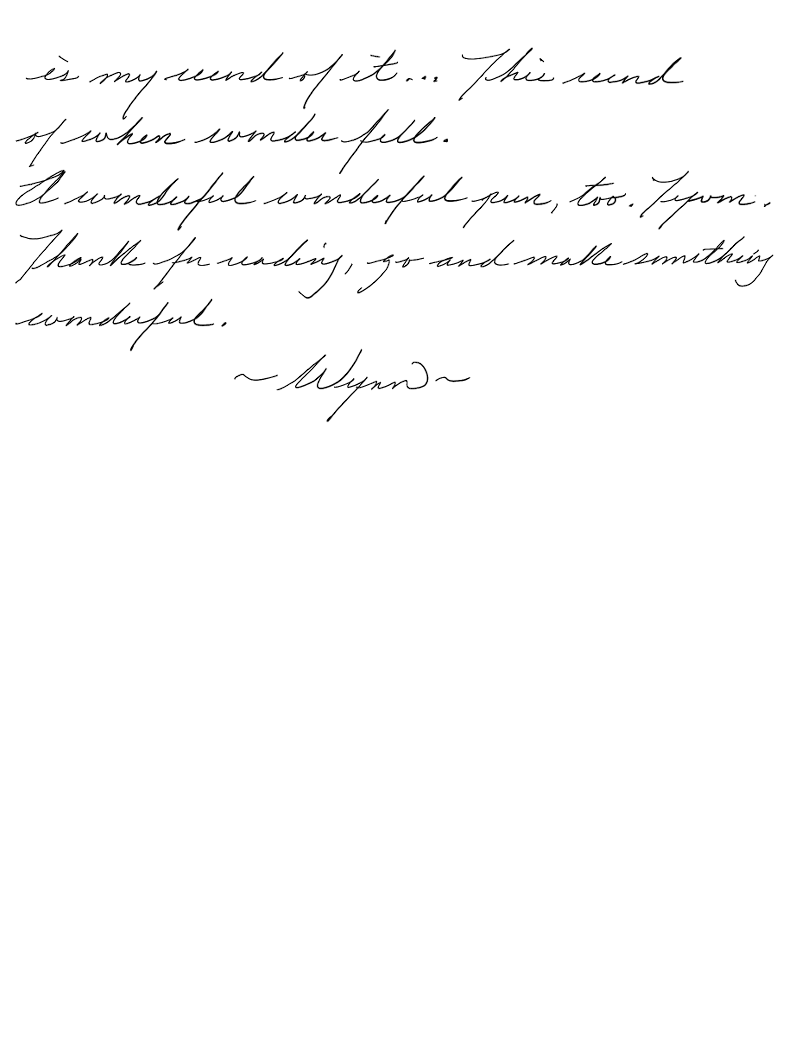 is my record of it... This record
of when wonder fell.
A wonderful wonderful pun, too. Tyvm.
Thanks for reading, go and make something
wonderful.
~Wynn~